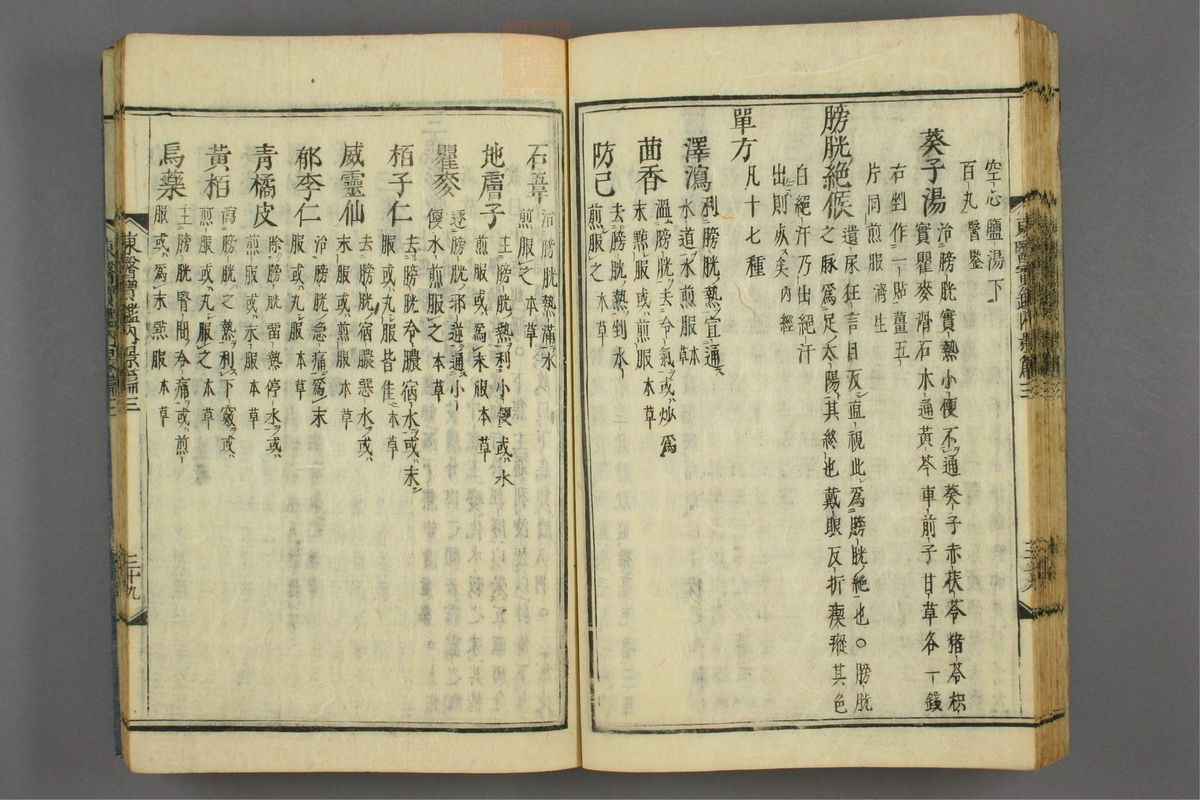 空心鹽湯下
百丸醫鑒
葵子湯
治膀胱實熱小便不通葵子赤茯苓猪苓枳
實瞿麥滑石木通黃芩車前子甘草各一錢
右剉作一貼薑五
片同煎服濟生
膀胱絶候
遺尿狂言目反直視此爲膀胱絶也○膀胱
之脉爲足太陽其終也戴眼反折瘈瘲其色
白絕汗乃出絕汗
出則死矣內經
單方
凡十七種
澤瀉
利膀胱熱宣通
水道水煎服本草
茴香
溫膀胱去冷氣或炒爲
末㸃服或煎服本草
防己
去膀胱熱剉水
煎服之本草
石韋
治膀胱熱滿水
煎服之本草
地膚子
主膀胱熱利小便或水
煎服或爲末服本草
瞿麥
逐膀胱邪逆通小
便水煎服之本草
栢子仁
去膀胱冷膿宿水或末
服或丸服皆佳本草
威靈仙
去膀胱宿膿惡水或
末服本草
郁李仁
治膀胱急痛爲末
服或丸服本草
靑橘皮
除膀胱留熱停水或
煎服或末服本草
黃栢
瀉膀胱之熱利下竅或
煎服或丸服之本草
烏藥
主膀胱腎間冷痛或煎
服或爲末㸃服
東醫寶鑑內景篇三
三十九